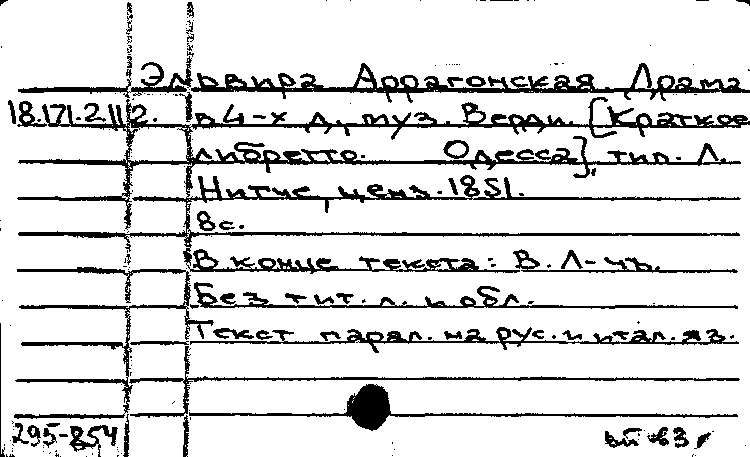 Эльвира Аррагонская. Драма
18.171.2.112. в 4-х д., муз. Верди. [Краткое
либретто. Одесса], тип. Л.
Нитче, ценз. 1851.
8с.
В конце текста: В. Л-чъ.
Без тит. л. и обл.
Текст парал. на рус. и итал. яз.
295-854